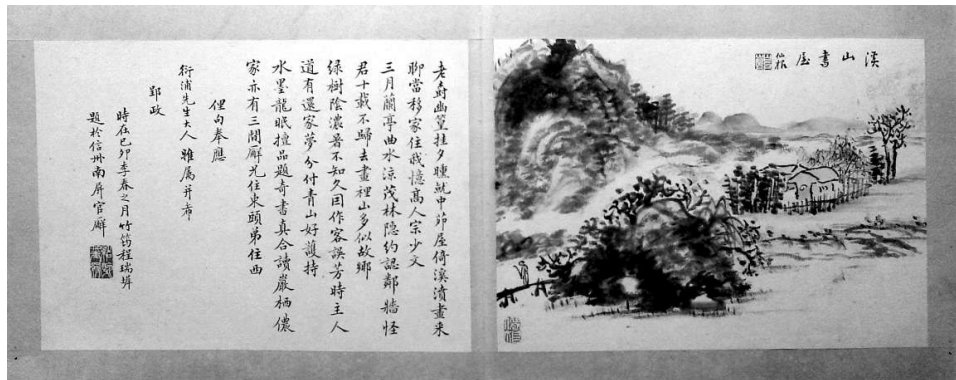 溪山書屋
老樹幽篁挂夕曛就中茆屋倚溪濆畫来
聊當移家住我憶高人宗少文
三月蘭亭曲水涼茂林隱約認鄰牆怪
君十載不歸去畫裡山多似故鄉
綠樹陰濃暑不知久因作客誤芳時主人
道有還家夢分付青山好護持
水墨龍眠擅品題奇書真合讀巖栖儂
家亦有三間廨兄住東頭弟住西
俚句奉應
衍浦先生大人雅屬并希
郢政
時在己卯季春之月竹筠程瑞
題於信州南屏官廨